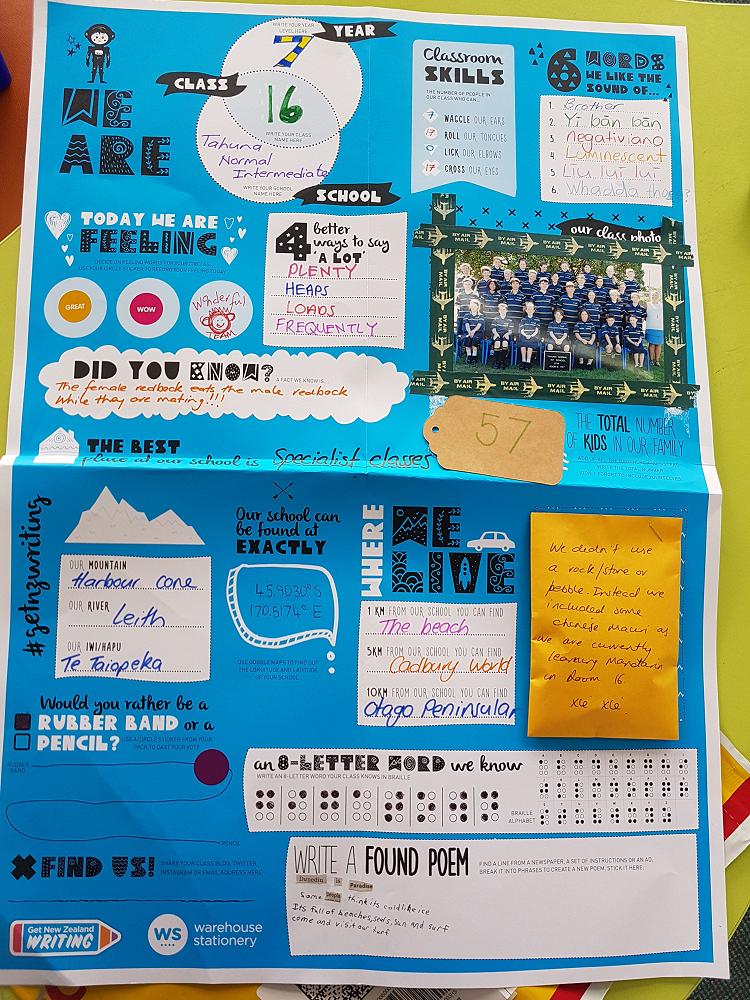 WRITE YOUR YEAR
LEVEL HERE
YEAR
7
CLASS
16
WRITE YOUR CLASS
NAME HERE
WE
ARE
Tahuna
Normal
Intermediate
WRITE YOUR SCHOOL
NAME HERE
SCHOOL
Classroom
SKILLS
THE NUMBER OF PEOPLE IN
OUR CLASS WHO CAN...
7 WAGGLE OUR EARS
17 ROLL OUR TONGUES
0 LICK OUR ELBOWS
17 CROSS OUR EYES
6 WORDS
WE LIKE THE
SOUND OF...
1. Brother
2. Yī bān bān
3. Negativiano
4. Luminescent
5. Liu lui lui
6. Whadda
TODAY WE ARE
FEELING
DECIDE ON FEELING WORDS FOR YOUR CIRCLES.
USE YOUR CIRCLE STICKER TO RECORD YOUR FEELING TODAY
GREAT
WOW
Wonderful
TEAM
4 better
ways to say
'A LOT'
PLENTY
HEAPS
LOADS
FREQUENTLY
our class photo
BY AIR MAIL
BY AIR MAIL
BY AIR MAIL
BY AIR MAIL
DID YOU KNOW? A FACT WE KNOW IS...
The female redback eats the male redback
While they are mating!!!
57
THE TOTAL NUMBER
OF KIDS IN OUR FAMILY
THE BEST
place at our school is Specialist classes
#getnzwriting
OUR MOUNTAIN
Harbour cone
OUR RIVER
Leith
OUR IWI/HAPU
Te Taiopeka
Our school can
be found at
EXACTLY
45.9030°S
170.5174°E
USE GOOGLE MAPS TO FIND OUT
THE LONGITUDE AND LATITUDE
OF YOUR SCHOOL.
WHERE
WE
LIVE
1 KM FROM OUR SCHOOL YOU CAN FIND
The beach
5KM FROM OUR SCHOOL YOU CAN FIND
Cadbury World
10KM FROM OUR SCHOOL YOU CAN FIND
Otago Peninsular
We didn't use
a rock/stone or
pebble. Instead we
included some
chinese maui as
we are currently
learning Mandarin
in Room 16
xiè xiè
Would you rather be a
RUBBER BAND or a
PENCIL?
USE A CIRCLE STICKER FROM YOUR
PACK TO CAST YOUR VOTE
RUBBER
BAND
PENCIL
an 8-LETTER WORD we know
WRITE AN 8-LETTER WORD YOUR CLASS KNOWS IN BRAILLE
BRAILLE
ALPHABET
FIND US!
SHARE YOUR CLASS BLOG, TWITTER,
INSTAGRAM OR EMAIL ADDRESS HERE
WRITE A FOUND POEM
FIND A LINE FROM A NEWSPAPER, A SET OF INSTRUCTIONS OR AN AD.
BREAK IT INTO PHRASES TO CREATE A NEW POEM. STICK IT HERE.
Dunedin is Paradise
Some people think its cold like ice
Its full of beaches, seals, sun and surf
come and visit our turf
Get New Zealand
WRITING
WS
warehouse
stationery